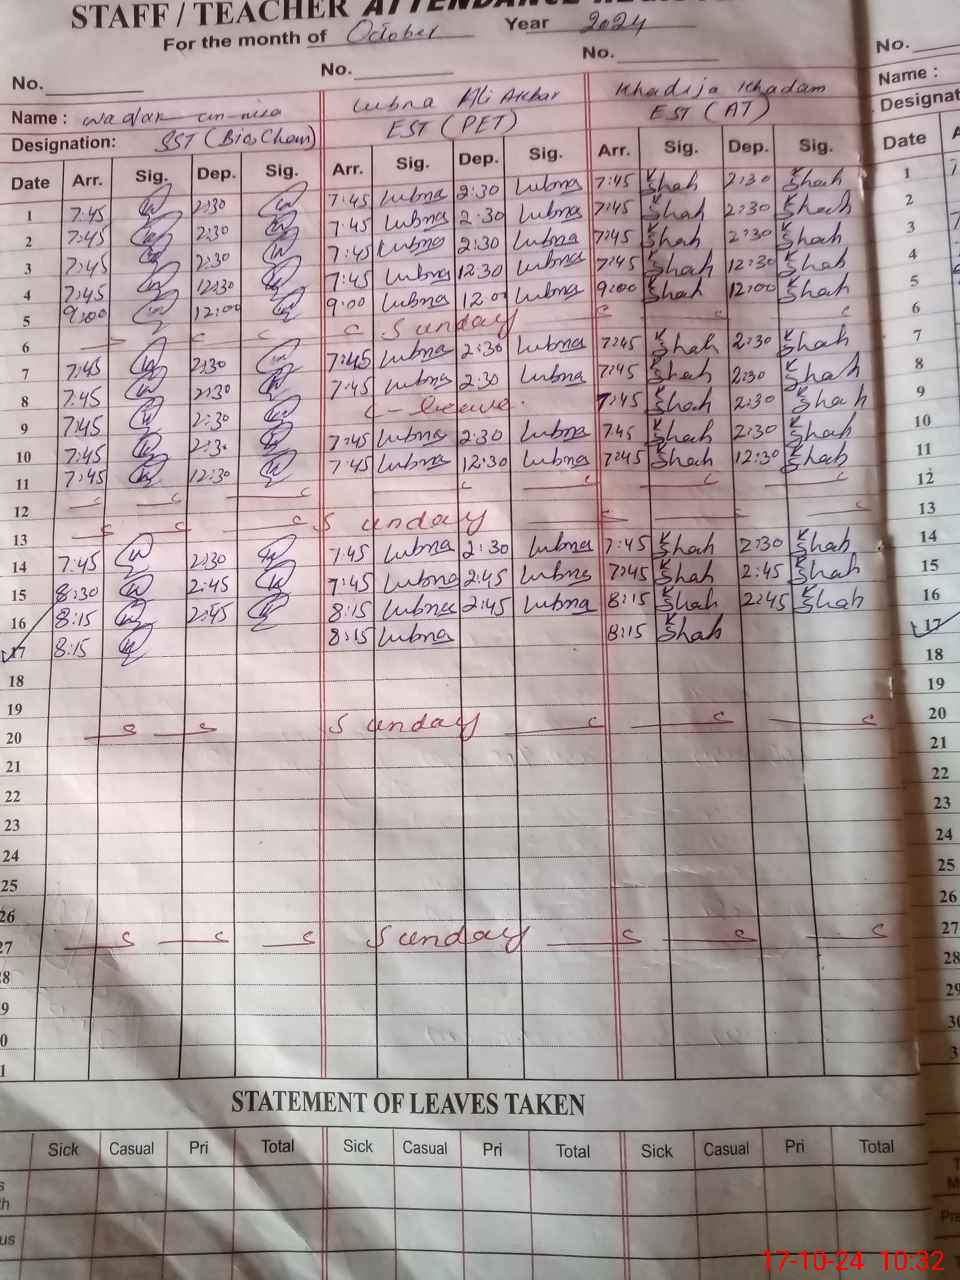 STAFF / TEACHER ATTENDANCE
For the month of October Year 2024
No. No. No. No.
Name : Lubna Ali Akbar Khadija Khadam Name :
Designation: SST (Bio Chem) EST (PET) EST (AT) Designat
Date Arr. Sig. Dep. Sig. Arr. Sig. Dep. Sig. Arr. Sig. Dep. Sig. Date
1 7:45 2:30 7:45 Lubna 2:30 Lubna 7:45 Shah 2:30 Shah 1
2 7:45 2:30 7:45 Lubna 2:30 Lubna 7:45 Shah 2:30 Shah 2
3 7:45 2:30 7:45 Lubna 2:30 Lubna 7:45 Shah 2:30 Shah 3
4 7:45 12:30 7:45 Lubna 12:30 Lubna 7:45 Shah 12:30 Shah 4
5 9:00 12:00 9:00 Lubna 12:00 Lubna 9:00 Shah 12:00 Shah 5
6 Sunday 6
7 7:45 2:30 7:45 Lubna 2:30 Lubna 7:45 Shah 2:30 Shah 7
8 7:45 2:30 7:45 Lubna 2:30 Lubna 7:45 Shah 2:30 Shah 8
9 7:45 2:30 C - leave. 7:45 Shah 2:30 Shah 9
10 7:45 2:30 7:45 Lubna 2:30 Lubna 7:45 Shah 2:30 Shah 10
11 7:45 12:30 7:45 Lubna 12:30 Lubna 7:45 Shah 12:30 Shah 11
12 12
13 Sunday 13
14 7:45 2:30 7:45 Lubna 2:30 Lubna 7:45 Shah 2:30 Shah 14
15 8:30 2:45 7:45 Lubna 2:45 Lubna 7:45 Shah 2:45 Shah 15
16 8:15 2:45 8:15 Lubna 2:45 Lubna 8:15 Shah 2:45 Shah 16
17 8:15 8:15 Lubna 8:15 Shah 17
18 18
19 19
20 Sunday 20
21 21
22 22
23 23
24 24
25 25
26 26
27 Sunday 27
8 28
9 29
0 30
1 3
STATEMENT OF LEAVES TAKEN
Sick Casual Pri Total Sick Casual Pri Total Sick Casual Pri Total
17-10-24 10:32